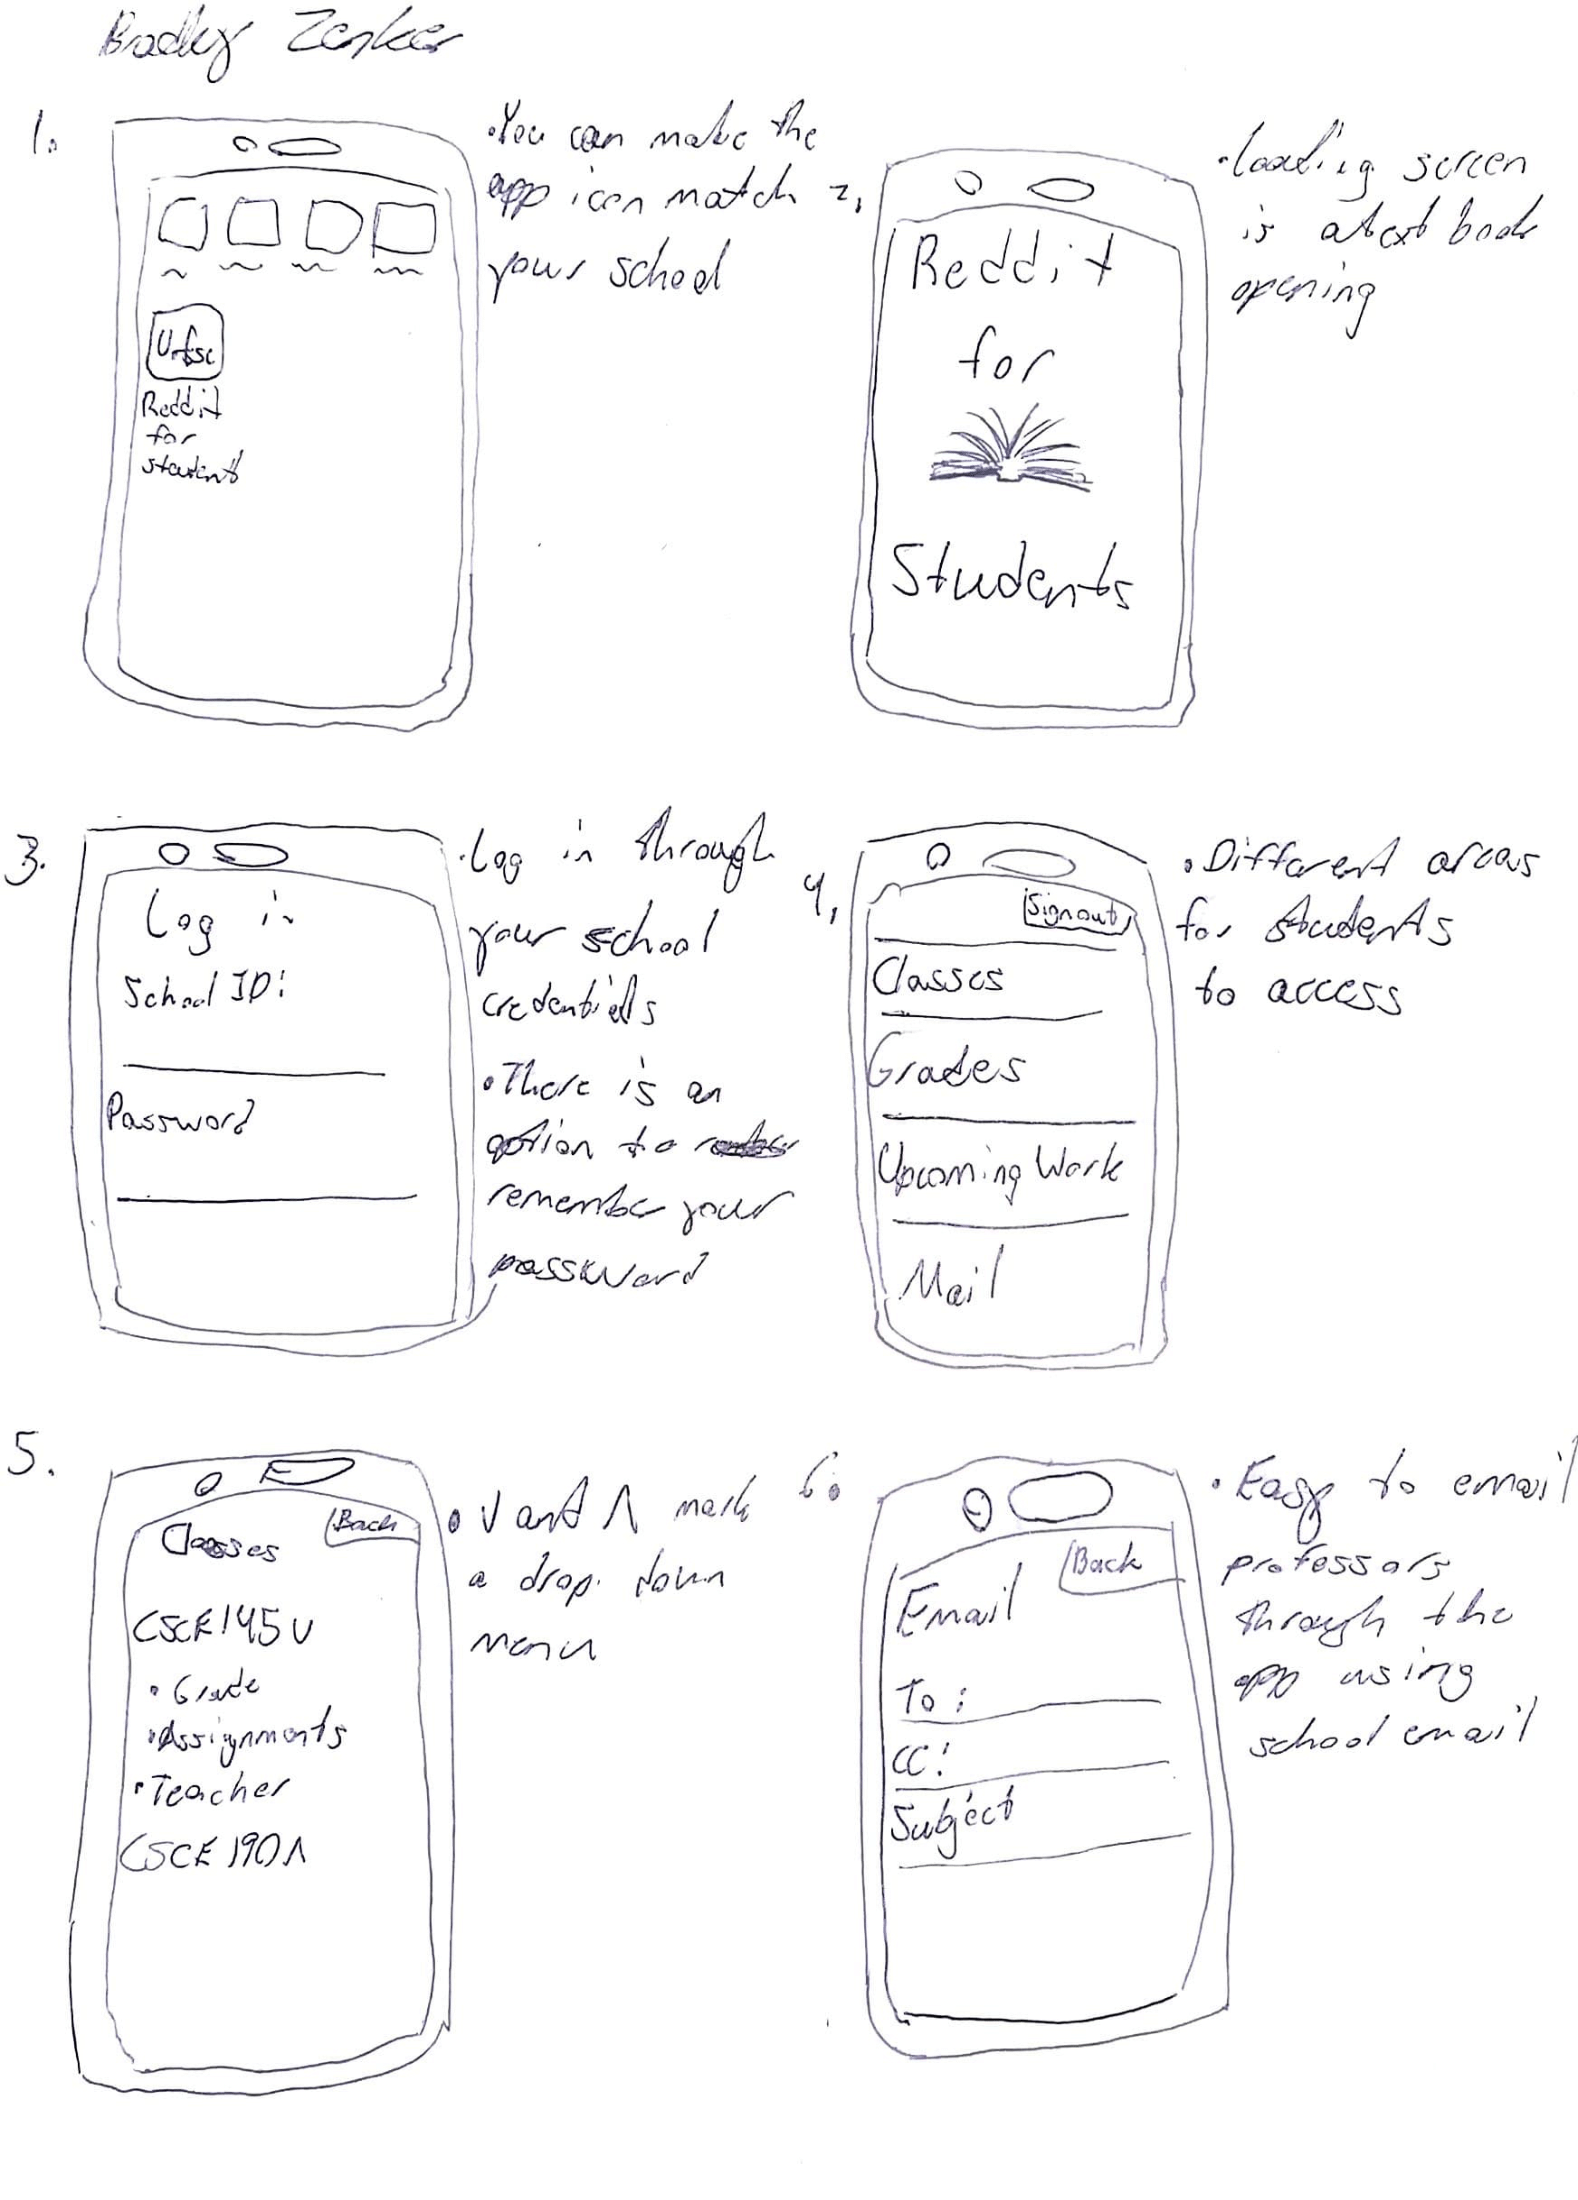 Bradley Zenker
1.
Uofsc
Reddit
for
student
• You can make the
app icon match
your school
2.
Reddit
for
Students
• loading screen
is a text book
opening
3.
Log in
School ID:
Password
• Log in through
your school
credentials
• There is an
option to
remember your
password
4.
Sign out
Classes
Grades
Upcoming Work
Mail
• Different areas
for students
to access
5.
Back
Classes
CSCE 145 V
• Grade
• Assignments
• Teacher
CSCE 190 Λ
• V and Λ mark
a drop down
menu
6.
Back
Email
To:
CC:
Subject
• Easy to email
professors
through the
app using
school email